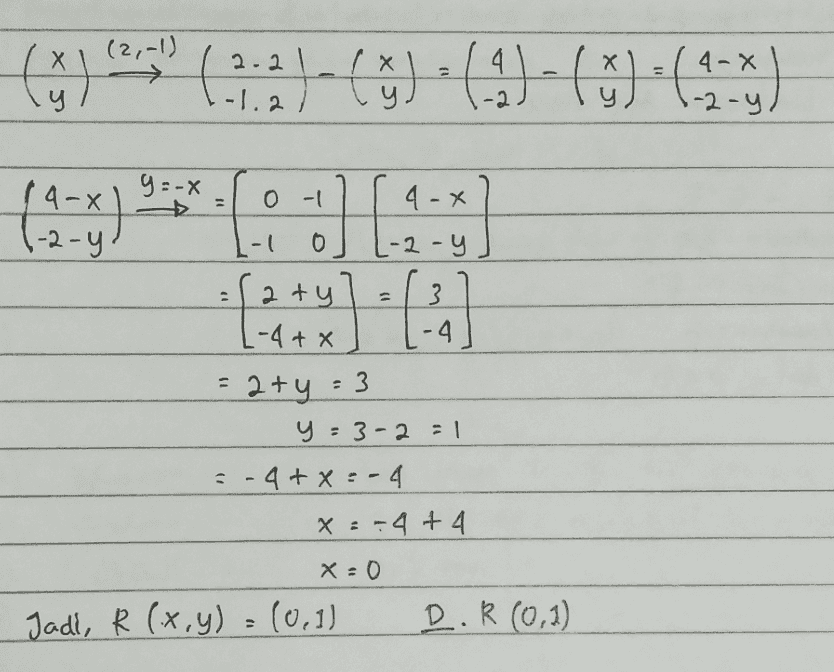 (x y) (2,-1) → (2.2 -1.2) - (x y) = (4 -2) - (x y) = (4-x -2-y)
(4-x -2-y) y=-x → = [0 -1 -1 0] [4-x -2-y]
= [2+y -4+x] = [3 -4]
= 2+y = 3
y = 3-2 = 1
= -4+x = -4
x = -4+4
x = 0
Jadi, R (x,y) = (0,1) D. R (0,1)